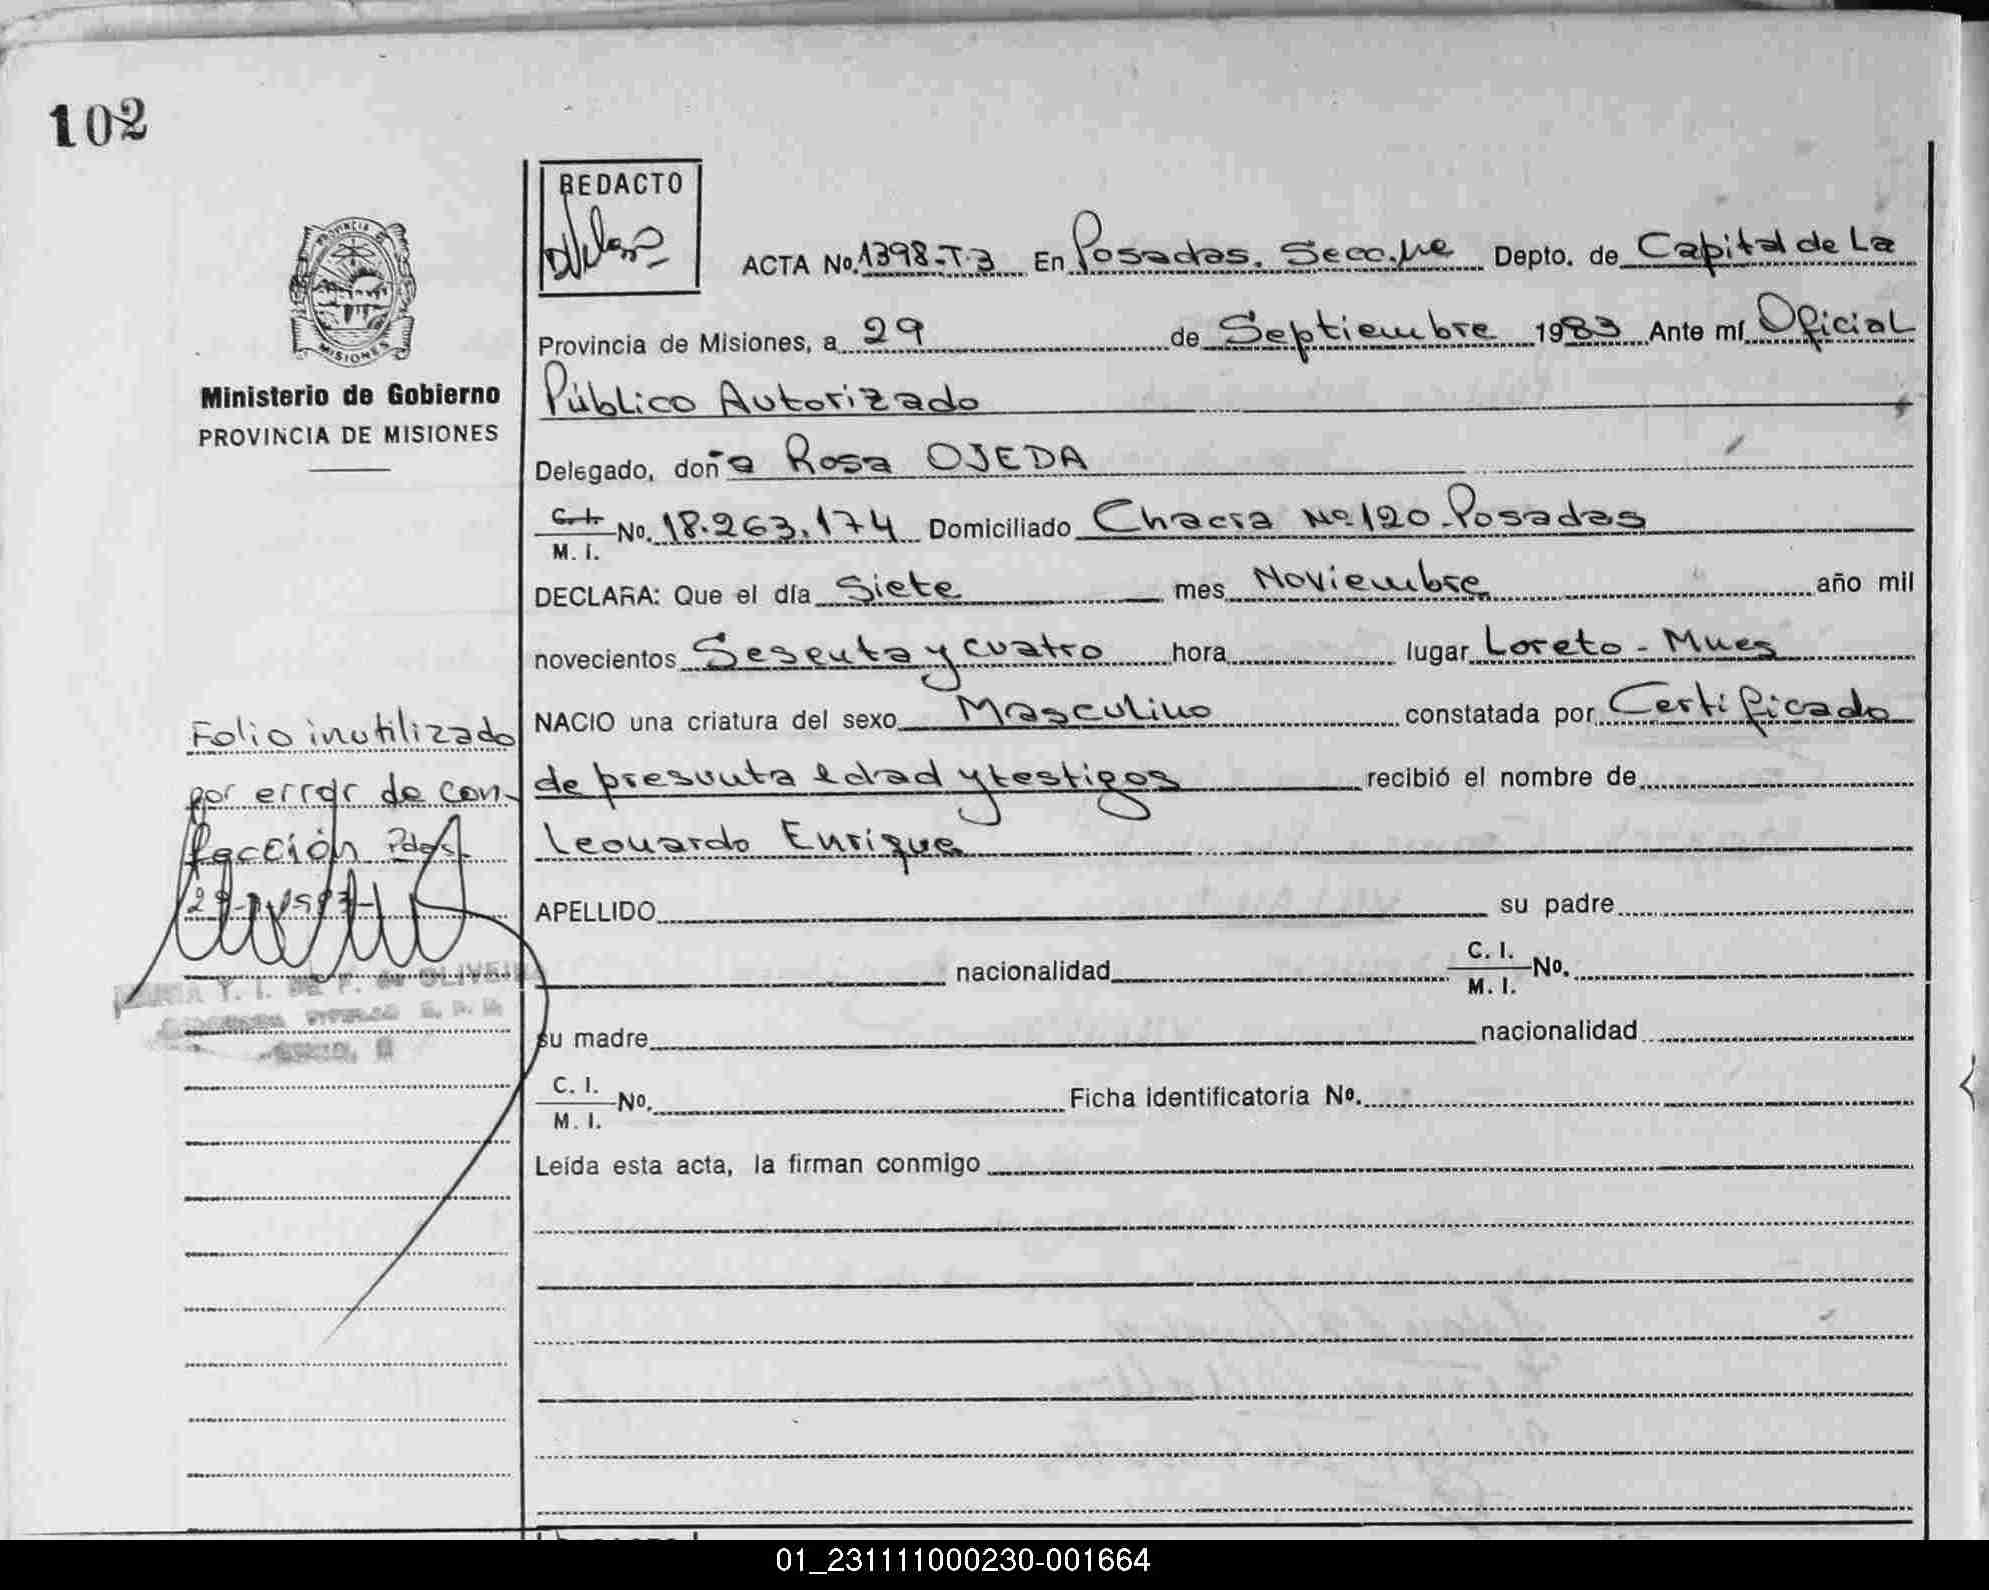 102
PROVINCIA DE
MISIONES
Ministerio de Gobierno
PROVINCIA DE MISIONES
REDACTO
ACTA No. 1398-T.3 En Posadas. Secc. Depto. de Capital de La
Provincia de Misiones, a 29 de Septiembre 1983 Ante mí Oficial
Público Autorizado
Delegado, doña Rosa OJEDA
C. I.
M. I. No. 18.263.174 Domiciliado Chacra No. 120. Posadas
DECLARA: Que el día Siete mes Noviembre año mil
novecientos Sesenta y cuatro hora lugar Loreto - Mnes
NACIO una criatura del sexo Masculino constatada por Certificado
de presunta edad y testigos recibió el nombre de
Leonardo Enrique
APELLIDO su padre
nacionalidad C. I.
M. I. No.
su madre nacionalidad
C. I.
M. I. No. Ficha identificatoria No.
Leída esta acta, la firman conmigo
Folio inutilizado
por error de con-
fección Pdas.
Y. I. DE F. de OLIVEIRA
01_231111000230-001664